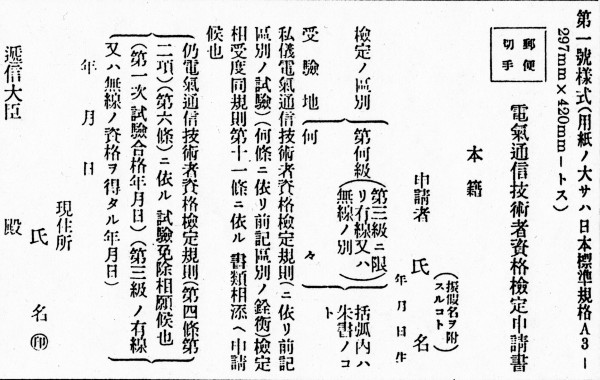 第一號樣式(用紙ノ大サハ日本標準規格A3ー
297mm×420mmートス)
郵便
切手
電氣通信技術者資格檢定申請書
本籍
(振假名ヲ附
スルコト)
申請者 氏名
年月日生
檢定ノ區別 第何級(第三級ニ限
リ有線又ハ
無線ノ別)
括弧內ハ
朱書ノコ
ト
受驗地 何々
私儀電氣通信技術者資格檢定規則(ニ依リ前記
區別ノ試驗)(何條ニ依リ前記區別ノ銓衡)檢定
相受度同規則第十一條ニ依ル書類相添ヘ申請
候也
仍電氣通信技術者資格檢定規則(第四條第
二項)(第六條)ニ依ル試驗免除相願候也
(第一次試驗合格年月日)(第三級ノ有線
又ハ無線ノ資格ヲ得タル年月日)
年月日
現住所
氏名㊞
遞信大臣 殿